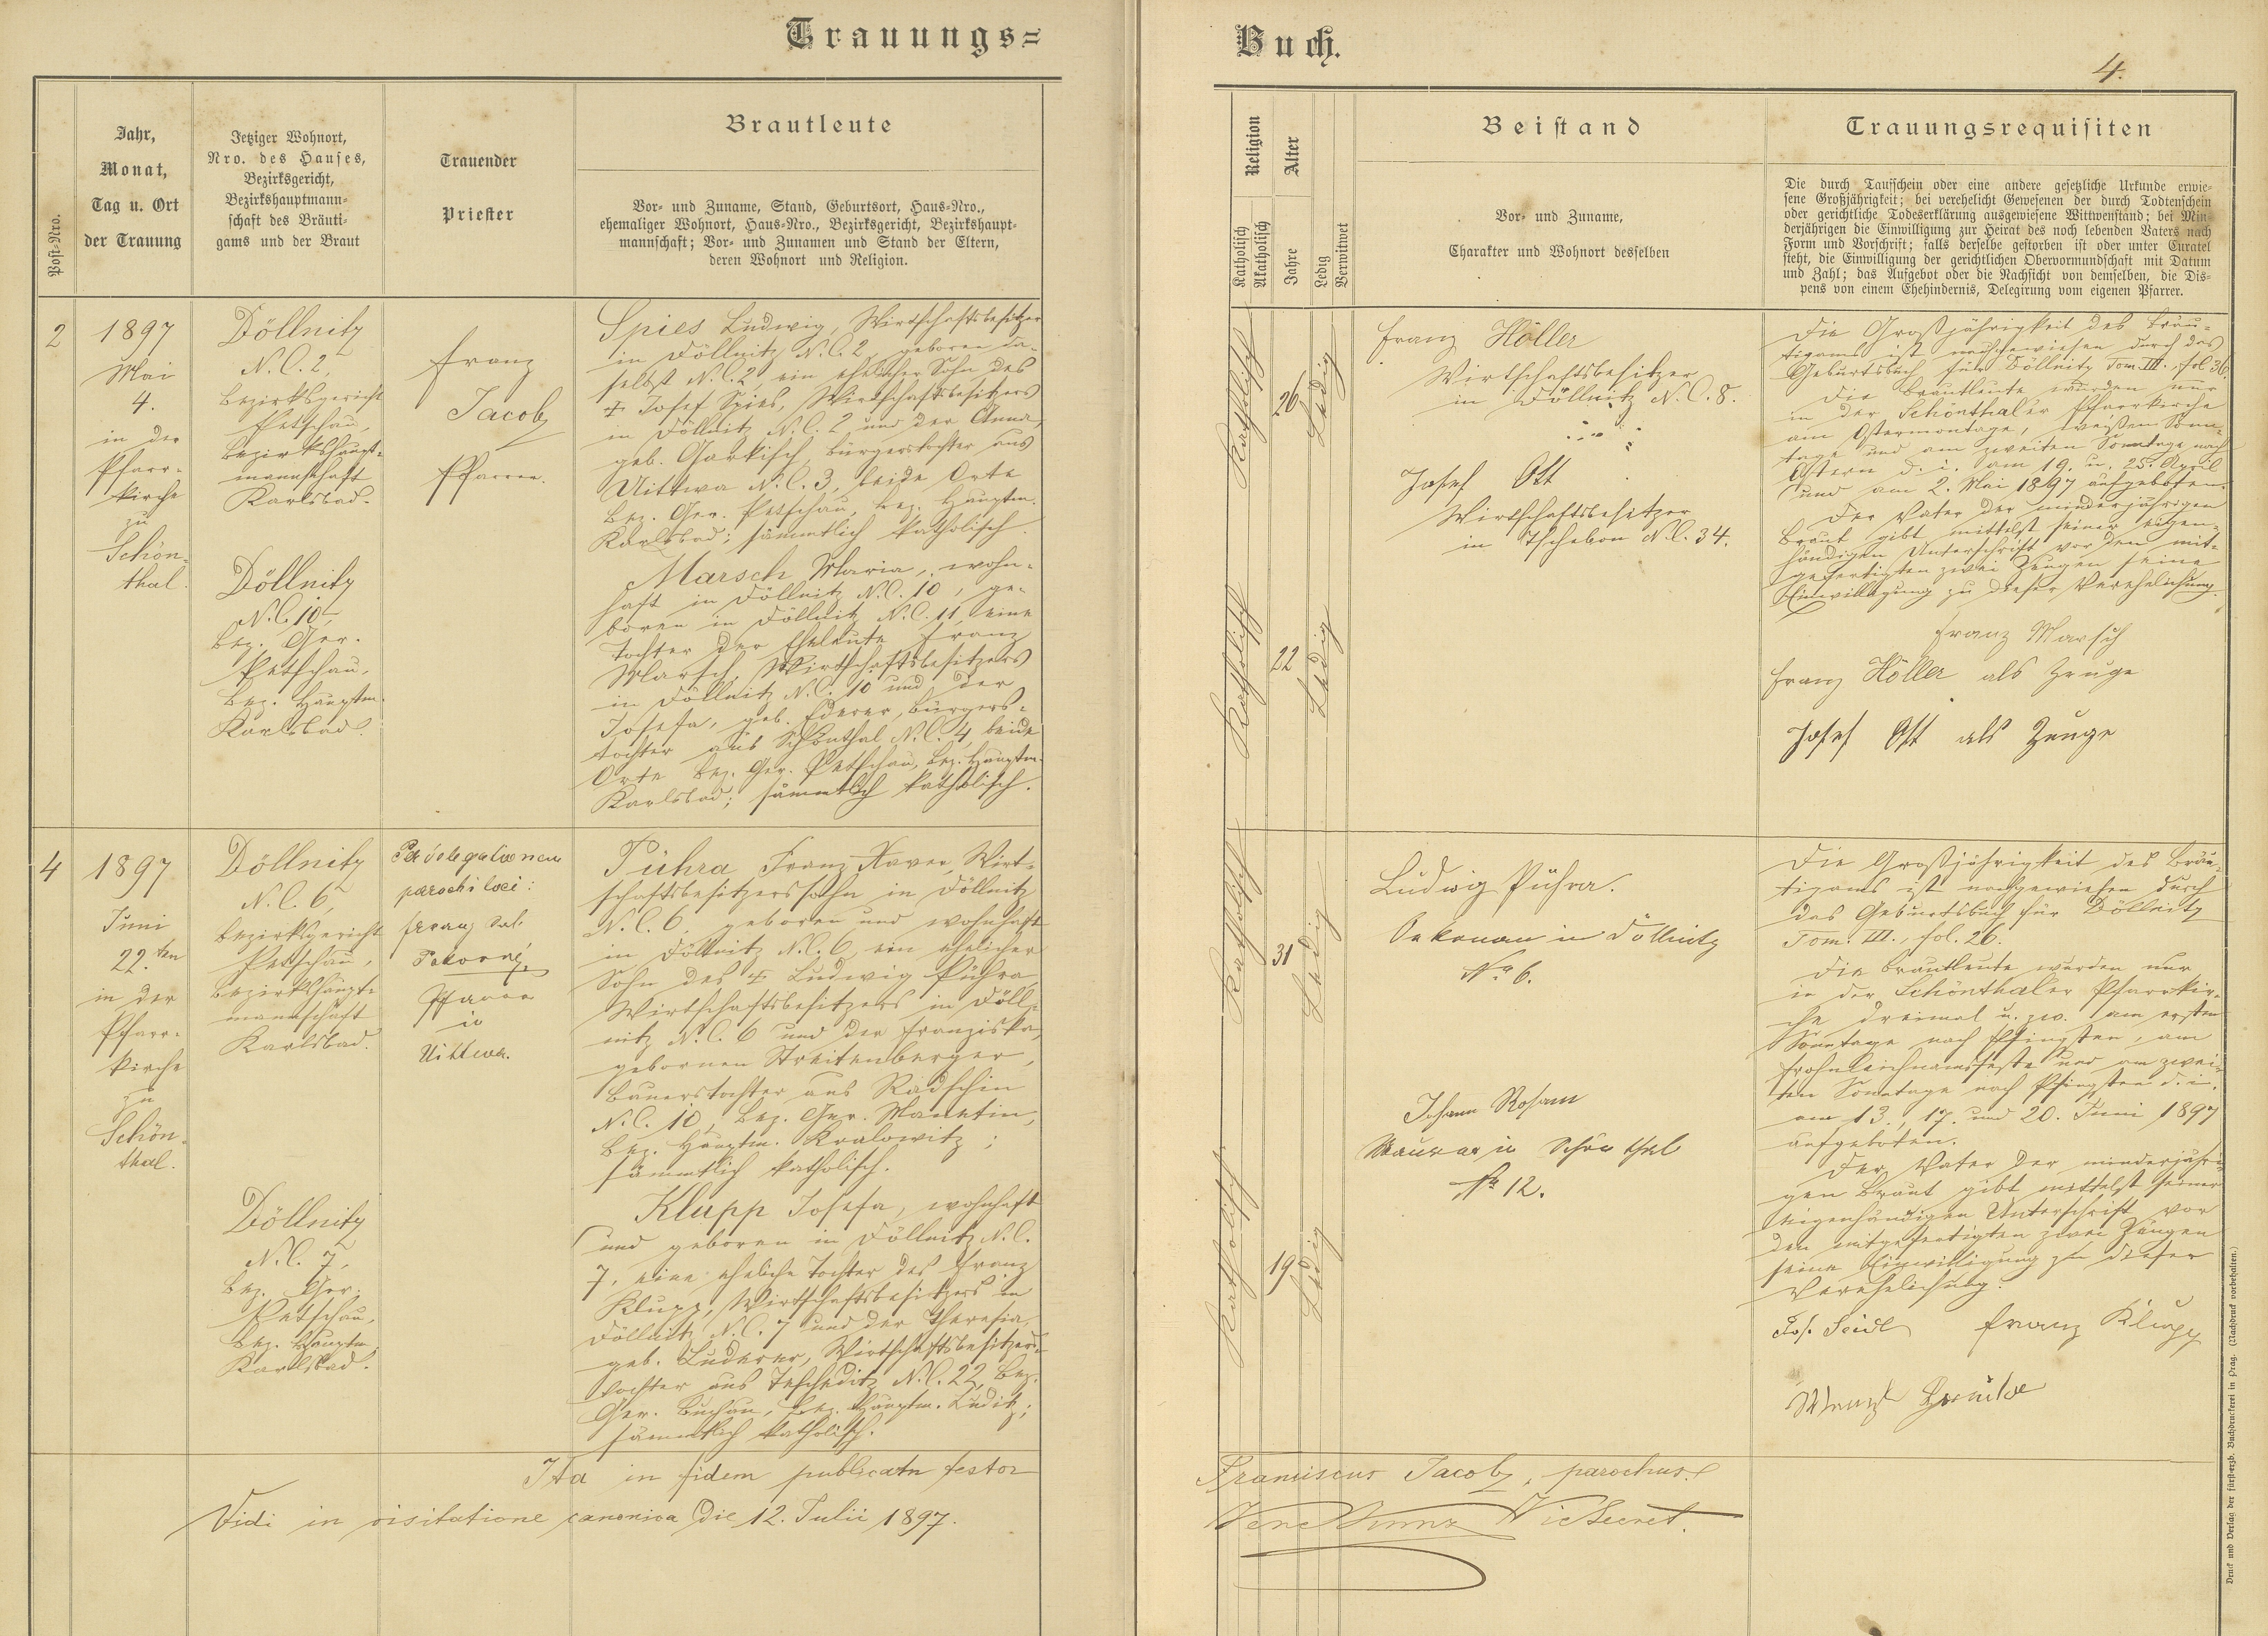 Trauungs=
Buch.
4.
Post-Nro.
Jahr,
Monat,
Tag u. Ort
der Trauung
Jetziger Wohnort,
Nro. des Hauses,
Bezirksgericht,
Bezirkshauptmann-
schaft des Bräuti-
gams und der Braut
Trauender
Priester
Brautleute
Vor- und Zuname, Stand, Geburtsort, Haus-Nro.,
ehemaliger Wohnort, Haus-Nro., Bezirksgericht, Bezirkshaupt-
mannschaft; Vor- und Zunamen und Stand der Eltern,
deren Wohnort und Religion.
Religion
Katholisch
Akatholisch
Alter
Jahre
Ledig
Verwitwet
Beistand
Vor- und Zuname,
Charakter und Wohnort desselben
Trauungsrequisiten
Die durch Taufschein oder eine andere gesetzliche Urkunde erwie-
sene Großjährigkeit; bei verehelicht Gewesenen der durch Todtenschein
oder gerichtliche Todeserklärung ausgewiesene Wittwenstand; bei Min-
derjährigen die Einwilligung zur Heirat des noch lebenden Vaters nach
Form und Vorschrift; falls derselbe gestorben ist oder unter Curatel
steht, die Einwilligung der gerichtlichen Obervormundschaft mit Datum
und Zahl; das Aufgebot oder die Nachsicht von demselben, die Dis-
pens von einem Ehehindernis, Delegirung vom eigenen Pfarrer.
2
1897
Mai
4.
in der
Pfarr-
kirche
zu
Schön-
thal.
Döllnitz
N.C. 2,
Bezirksgericht
Petschau,
Bezirkshaupt-
mannschaft
Karlsbad.
Döllnitz
N.C. 10,
Bez. Ger.
Petschau,
Bez. Hauptm.
Karlsbad.
Franz
Jacob,
Pfarrer.
Spies Ludwig, Wirthschaftsbesitzer
in Döllnitz N.C. 2, geboren da-
selbst N.C. 2, ein ehelicher Sohn des
† Josef Spies, Wirthschaftsbesitzers
in Döllnitz N.C. 2 und der Anna,
geb. Garkisch, Bürgerstochter aus
Uittwa N.C. 3, beide Orte
Bez. Ger. Petschau, Bez. Hauptm.
Karlsbad; sämmtlich katholisch.
Marsch Maria, wohn-
haft in Döllnitz N.C. 10, ge-
boren in Döllnitz N.C. 11, eine
Tochter der Eheleute Franz
Marsch, Wirthschaftsbesitzers
in Döllnitz N.C. 10 und der
Josefa, geb. Ederer, Bürgers-
tochter aus Schönthal N.C. 4, beide
Orte Bez. Ger. Petschau, Bez. Hauptm.
Karlsbad; sämmtlich katholisch.
Katholisch
26
Ledig
Katholisch
22
Ledig
Franz Höller
Wirthschaftsbesitzer
in Döllnitz N.C. 8.
Josef Ott
Wirthschaftsbesitzer
in Tschebon N.C. 34.
Die Großjährigkeit des Bräu-
tigams ist nachgewiesen durch das
Geburtsbuch für Döllnitz Tom. III. fol. 36.
Die Brautleute wurden nur
in der Schönthaler Pfarrkirche
am Ostermontage, weißen Sonn-
tage und am zweiten Sonntage nach
Ostern d. i. am 19. u. 25. April
und am 2. Mai 1897 aufgeboten.
Der Vater der minderjährigen
Braut gibt mittelst seiner eigen-
händigen Unterschrift vor den mit-
gefertigten zwei Zeugen seine
Einwilligung zu dieser Verehelichung.
Franz Marsch
Franz Höller als Zeuge
Josef Ott als Zeuge
4
1897
Juni
22.ten
in der
Pfarr-
kirche
zu
Schön-
thal.
Döllnitz
N.C. 6,
Bezirksgericht
Petschau,
Bezirkshaupt-
mannschaft
Karlsbad.
Döllnitz
N.C. 7,
Bez. Ger.
Petschau,
Bez. Hauptm.
Karlsbad.
Per delegationem
parochi loci:
Franz Sal.
Pokorný,
Pfarrer
in
Uittwa.
Pühra Franz Xaver, Wirt-
schaftsbesitzerssohn in Döllnitz
N.C. 6, geboren und wohnhaft
in Döllnitz N.C. 6, ein ehelicher
Sohn des † Ludwig Pühra,
Wirthschaftsbesitzers in Döll-
nitz N.C. 6 und der Franziska,
gebornen Streitenberger,
Bauerstochter aus Radschin
N.C. 10, Bez. Ger. Manetin,
Bez. Hauptm. Kralowitz;
sämmtlich katholisch.
Klupp Josefa, wohnhaft
und geboren in Döllnitz N.C.
7, eine eheliche Tochter des Franz
Klupp, Wirthschaftsbesitzers in
Döllnitz N.C. 7 und der Theresia,
geb. Luderer, Wirthschaftsbesitzers-
tochter aus Tescheditz N.C. 22, Bez.
Ger. Buchau, Bez. Hauptm. Luditz;
sämmtlich katholisch.
Katholisch
31
Ledig
Katholisch
19
Ledig
Ludwig Pühra.
Oekonom in Döllnitz
No 6.
Johann Rosam
Maurer in Schönthal
No 12.
Die Großjährigkeit des Bräu-
tigams ist nachgewiesen durch
das Geburtsbuch für Döllnitz
Tom. III., fol. 26.
Die Brautleute wurden nur
in der Schönthaler Pfarrkir-
che dreimal u. zw. am ersten
Sonntage nach Pfingsten, am
Frohnleichnamsfeste und am zwei-
ten Sonntage nach Pfingsten d. i.
am 13., 17. und 20. Juni 1897
aufgeboten.
Der Vater der minderjähri-
gen Braut gibt mittelst seiner
eigenhändigen Unterschrift vor
den mitgefertigten zwei Zeugen
seine Einwilligung zu dieser
Verehelichung.
Jos. Seidl Franz Klupp
Ita in fidem publicam testor
Franciscus Jacob, parochus.
Vidi in visitatione canonica die 12. Julii 1897.
Vic Secret.
Druck und Verlag der fürst-erzb. Buchdruckerei in Prag. (Nachdruck vorbehalten.)